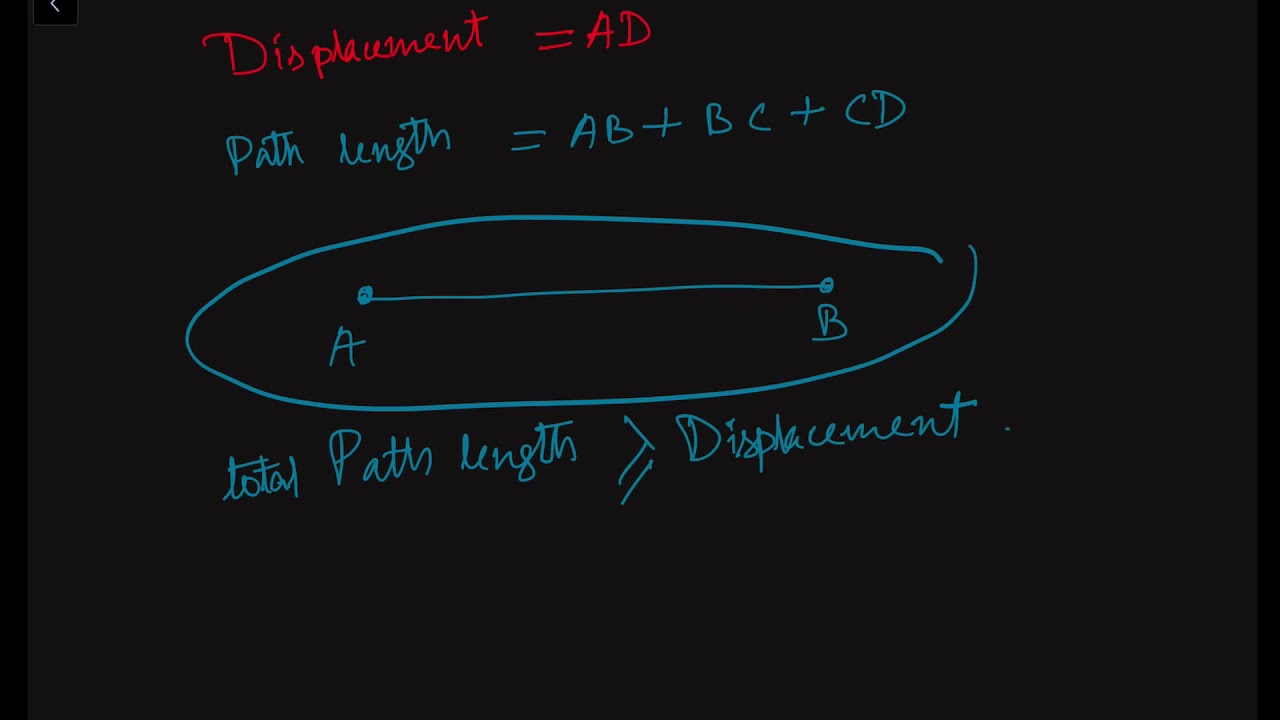 Displacement = AD
Path length = AB + BC + CD
A B
total Path length ⩾ Displacement .